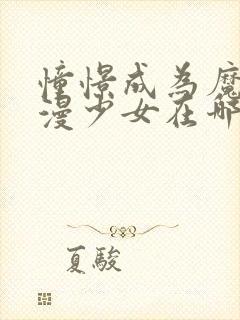 憧憬成為魔
漫少女在哪
夏駿